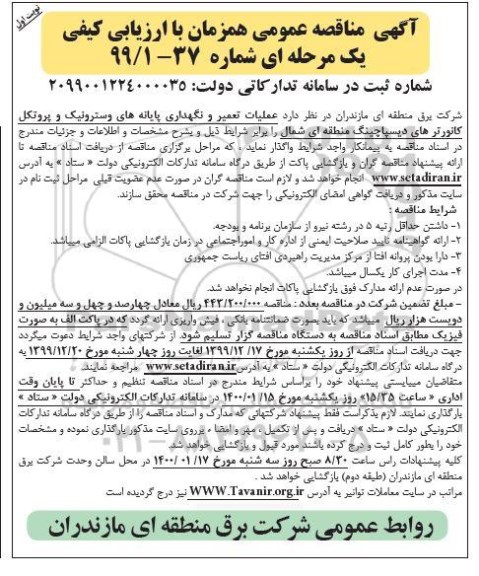 نوبت اول
آگهی مناقصه عمومی همزمان با ارزیابی کیفی
یک مرحله ای شماره ۳۷-۹۹/۱
شماره ثبت در سامانه تدارکاتی دولت: ۲۰۹۹۰۰۱۲۲۴۰۰۰۰۳۵
شرکت برق منطقه ای مازندران در نظر دارد عملیات تعمیر و نگهداری پایانه های وسترونیک و پروتکل
کانورتر های دیسپاچینگ منطقه ای شمال را برابر شرایط ذیل و بشرح مشخصات و اطلاعات و جزئیات مندرج
در اسناد مناقصه به پیمانکار واجد شرایط واگذار نماید . که مراحل برگزاری مناقصه از دریافت اسناد مناقصه تا
ارائه پیشنهاد مناقصه گران و بازگشایی پاکت از طریق درگاه سامانه تدارکات الکترونیکی دولت « ستاد » به آدرس
www.setadiran.ir انجام خواهد شد و لازم است مناقصه گران در صورت عدم عضویت قبلی مراحل ثبت نام در
سایت مذکور و دریافت گواهی امضای الکترونیکی را جهت شرکت در مناقصه محقق سازند.
شرایط مناقصه :
۱- داشتن حداقل رتبه ۵ در رشته نیرو از سازمان برنامه و بودجه.
۲- ارائه گواهینامه تایید صلاحیت ایمنی از اداره کار و امور اجتماعی در زمان بازگشایی پاکات الزامی میباشد.
۳- دارا بودن پروانه افتا از مرکز مدیریت راهبردی افتای ریاست جمهوری
۴- مدت اجرای کار یکسال میباشد.
در صورت عدم ارائه مدارک فوق بازگشایی پاکات انجام نخواهد شد.
- مبلغ تضمین شرکت در مناقصه بعدد : مناقصه ۴۴۳/۲۰۰/۰۰۰ ریال معادل چهارصد و چهل و سه میلیون و
دویست هزار ریال میباشد که باید بصورت ضمانتنامه بانکی ، فیش واریزی ارائه گردد که در پاکت الف به صورت
فیزیک مطابق اسناد مناقصه به دستگاه مناقصه گزار تسلیم شود. از شرکتهای واجد شرایط دعوت میگردد
جهت دریافت اسناد مناقصه از روز یکشنبه مورخ ۱۳۹۹/۱۲/۱۷ لغایت روز چهار شنبه مورخ ۱۳۹۹/۱۲/۲۰ به
درگاه سامانه تدارکات الکترونیکی دولت « ستاد » به آدرس www.setadiran.ir مراجعه نمایند.
متقاضیان میبایستی پیشنهاد خود را براساس شرایط مندرج در اسناد مناقصه تنظیم و حداکثر تا پایان وقت
اداری « ساعت ۱۵/۳۵» روز یکشنبه مورخ ۱۴۰۰/۰۱/۱۵ در سامانه تدارکات الکترونیکی دولت « ستاد »
بارگذاری نمایند. لازم بذکر است فقط پیشنهاد شرکتهائی که مدارک و اسناد مناقصه را از طریق درگاه سامانه تدارکات
الکترونیکی دولت « ستاد » دریافت و پس از تکمیل ، مهر و امضاء برروی سایت مذکور بارگذاری نموده و مشخصات
خود را بطور کامل ثبت و درج کرده باشند مورد قبول و بازگشایی خواهد شد.
کلیه پیشنهادات راس ساعت ۸/۳۰ صبح روز سه شنبه مورخ ۱۴۰۰/۰۱/۱۷ در محل سالن وحدت شرکت برق
منطقه ای مازندران (طبقه دوم) بازگشایی خواهد شد .
مراتب در سایت معاملات توانیر به آدرس WWW.Tavanir.org.ir نیز درج گردیده است
روابط عمومی شرکت برق منطقه ای مازندران